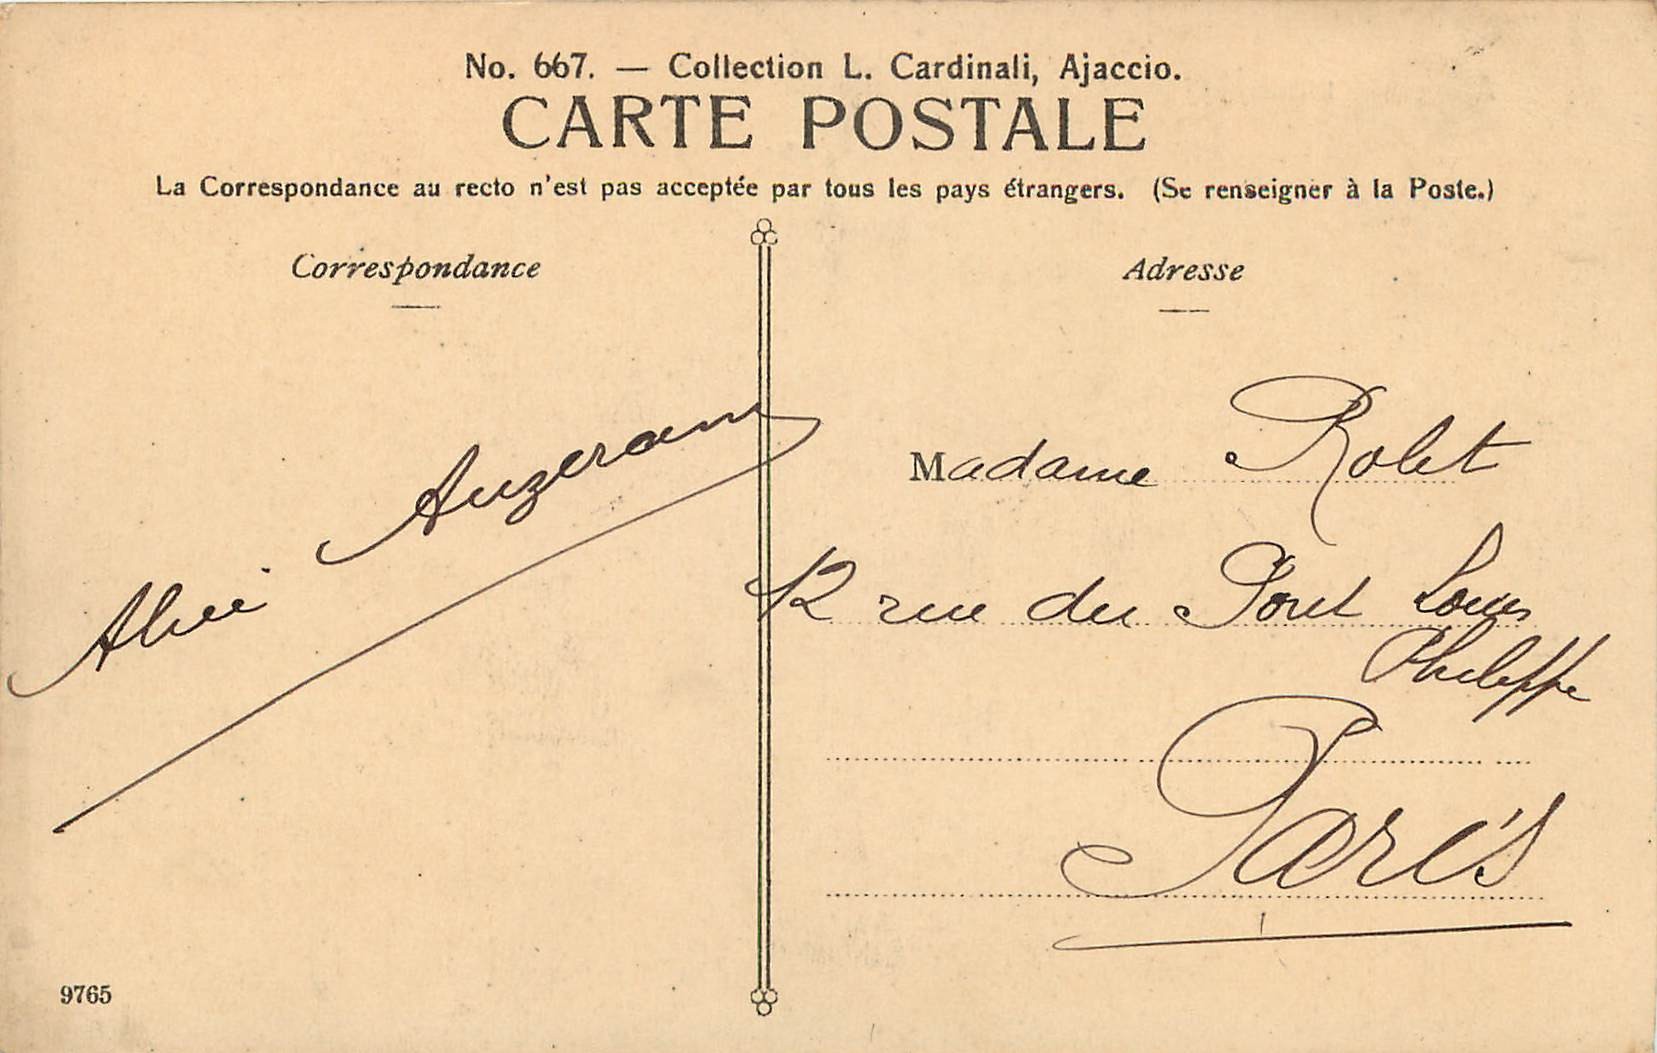 No. 667. — Collection L. Cardinali, Ajaccio.
CARTE POSTALE
La Correspondance au recto n'est pas acceptée par tous les pays étrangers. (Se renseigner à la Poste.)
Correspondance
Adresse
Madame Rolet
12 rue du Pont Louis
Philippe
Paris
9765